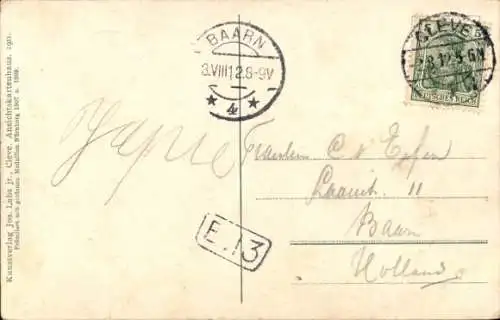 Kunstverlag Jos. Labs jr., Cleve. Ansichtskartenhaus. 1911.
Prämiiert mit goldenen Medaillen Nürnberg 1907 u. 1908.
BAARN
3.VIII.12.8-9V
4
CLEVE
DEUTSCHES REICH
Fräulein C. v.
11
Baarn
Holland
E.13